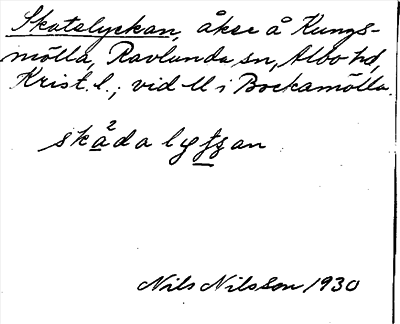 Skatalyckan, åker å Kungs-
mölla, Ravlunda sn, Albo hd,
Krist. l.; vid ll i Bockamölla.
skåda ly an
Nils Nilsson 1930